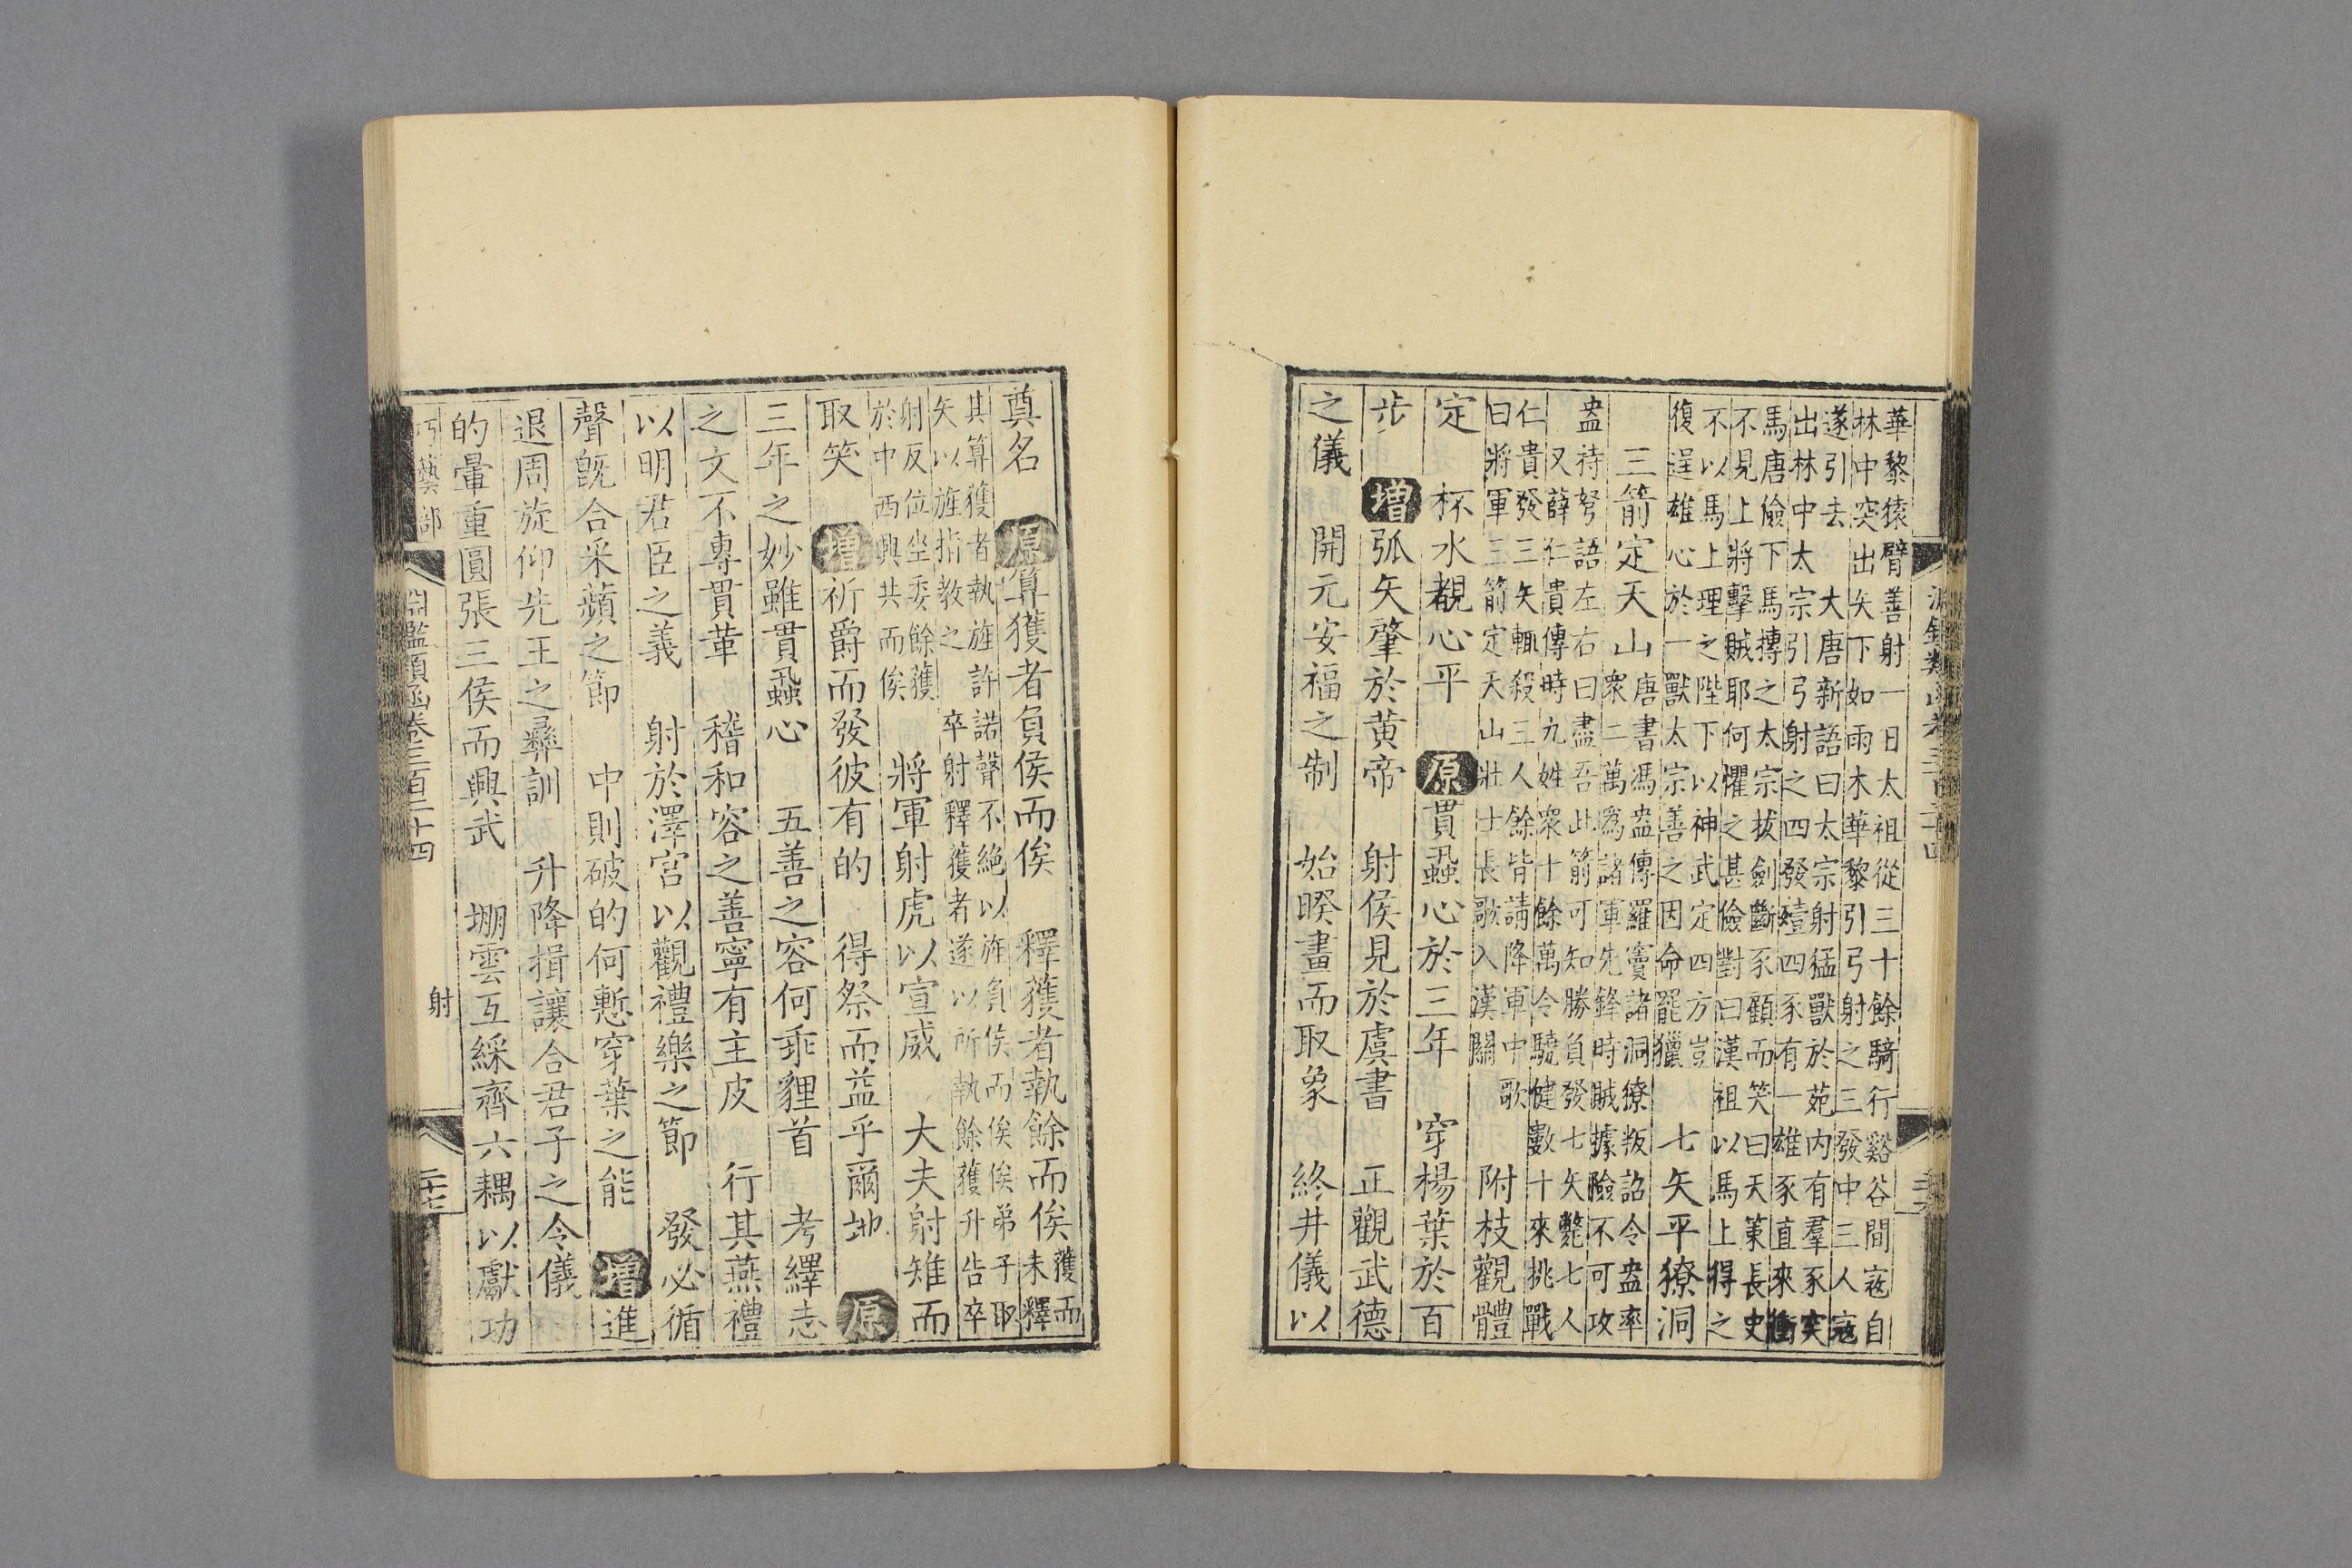 淵鑑類函卷三百二十四
華黎猿臂善射一日太祖從三十餘騎行谿谷間寇自
林中突出矢下如雨木華黎引弓射之三發中三人寇
遂引去　大唐新語曰太宗射猛獸於苑內有羣豕突
出林中太宗引弓射之四發殪四豕有一雄豕直來衝
馬唐儉下馬搏之太宗拔劍斷豕顧而笑曰天策長史
不見上將擊賊耶何懼之甚儉對曰漢祖以馬上得之
不以馬上理之陛下以神武定四方豈
復逞雄心於一獸太宗善之因命罷獵
七矢平獠洞
三箭定天山
唐書馮盎傳羅竇諸洞獠叛詔令盎率
衆二萬爲諸軍先鋒時賊據險不可攻
盎持弩語左右曰盡吾此箭可知勝負發七矢斃七人
又薛仁貴傳時九姓衆十餘萬令驍健數十來挑戰
仁貴發三矢輒殺三人餘皆請降軍中歌
曰將軍三箭定天山壯士長歌入漢關
附枝觀體
定　杯水覩心平　原貫蝨心於三年　穿楊葉於百
步　增弧矢肇於黃帝　射侯見於虞書　正觀武德
之儀　開元安福之制　始睽畫而取象　終井儀以
奠名　原算獲者負侯而俟　釋獲者執餘而俟
獲而
未釋
其算獲者執旌許諾聲不絕以旌負侯而俟俟弟子取
矢以旌指教之　卒射釋獲者遂以所執餘獲升告卒
射反位坐委餘獲
於中西興共而俟
將軍射虎以宣威　大夫射雉而
取笑　增祈爵而發彼有的　得祭而益乎爾地　原
三年之妙雖貫蝨心　五善之容何乖貍首　考繹志
之文不專貫革　稽和容之善寧有主皮　行其燕禮
以明君臣之義　射於澤宮以觀禮樂之節　發必循
聲旣合采蘋之節　中則破的何慙穿葉之能　增進
退周旋仰先王之彝訓　升降揖讓合君子之令儀
的暈重圓張三侯而興武　堋雲互綵齊六耦以獻功
巧藝部　淵鑑類函卷三百二十四　射　二十七